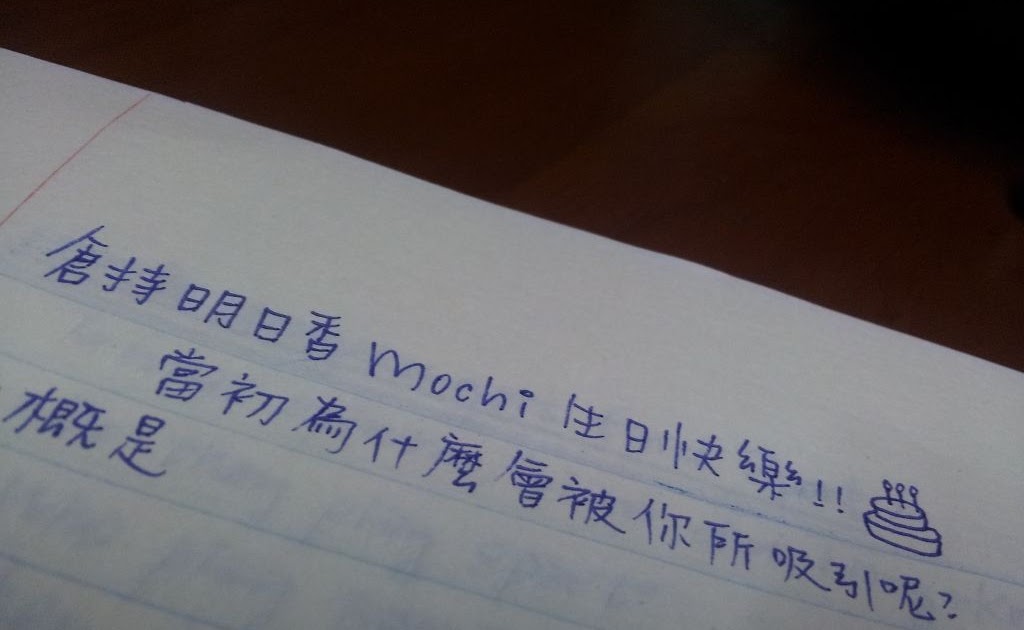 倉持明日香 mochi 生日快樂!!
當初為什麼會被你所吸引呢?
概是